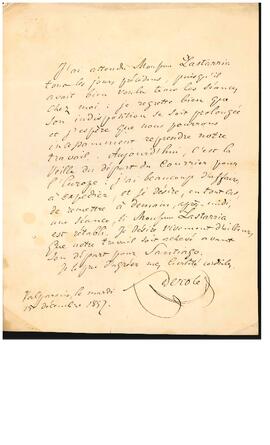 J'ai attendu Monsieur Lastarria
tous les jours précédens, puisqu'il
avait bien voulu tenir les séances
chez moi : je regrette bien que
son indisposition se soit prolongée
et j'espère que nous pourrons
incessamment reprendre notre
travail. Aujourd'hui, c'est la
veille du départ du Courrier pour
l'Europe : j'ai beaucoup d'affaires
à expédier et je désire, en tout cas
de remettre à demain, après-midi,
une séance, si Monsieur Lastarria
est rétabli. Je désire vivement d'ailleurs,
que notre travail soit achevé avant
son départ pour Santiago.
Je le prie d'agréer mes civilités cordiales
Derote
Valparaiso, le mardi
15 décembre 1857.